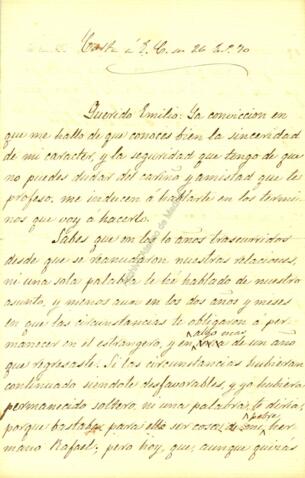 Carta á E. C. en 26 E.º 70
Querido Emilio: La conviccion en
que me hallo de que conoces bien la sinceridad
de mi caracter, y la seguridad que tengo de que
no puedes dudar del cariño y amistad que te
profeso, me inducen á hablarte en los termi-
nos que voy á hacerlo.
Sabes que en los 10 años trascurridos
desde que se reanudaron nuestras relaciones,
ni una sola palabra te hé hablado de nuestro
asunto, y menos aun en los dos años y meses
en que tas circunstancias te obligaron á per-
algo mas
manecer en el estrangero, y en de un año
que regresaste. Si las circunstancias hubieran
continuado siendote desfavorables, y yo hubiera
permanecido soltero, ni una palabra te diria,
pobre
porque bastaba para ello ser cosa de mi her-
mano Rafael; pero hoy, que, aunque quizás